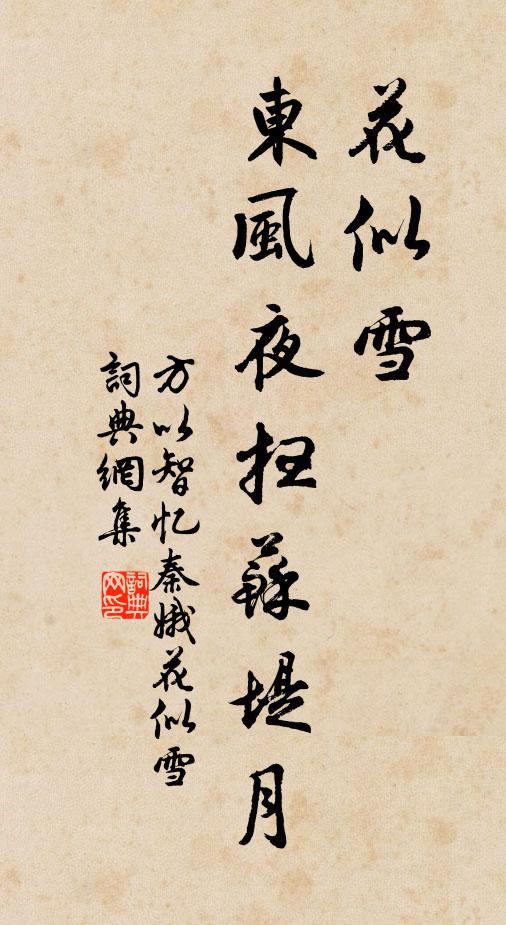 花似雪
東風夜扫蘇堤月
方以智忆秦娥花似雪
詞典網集
詞典网印